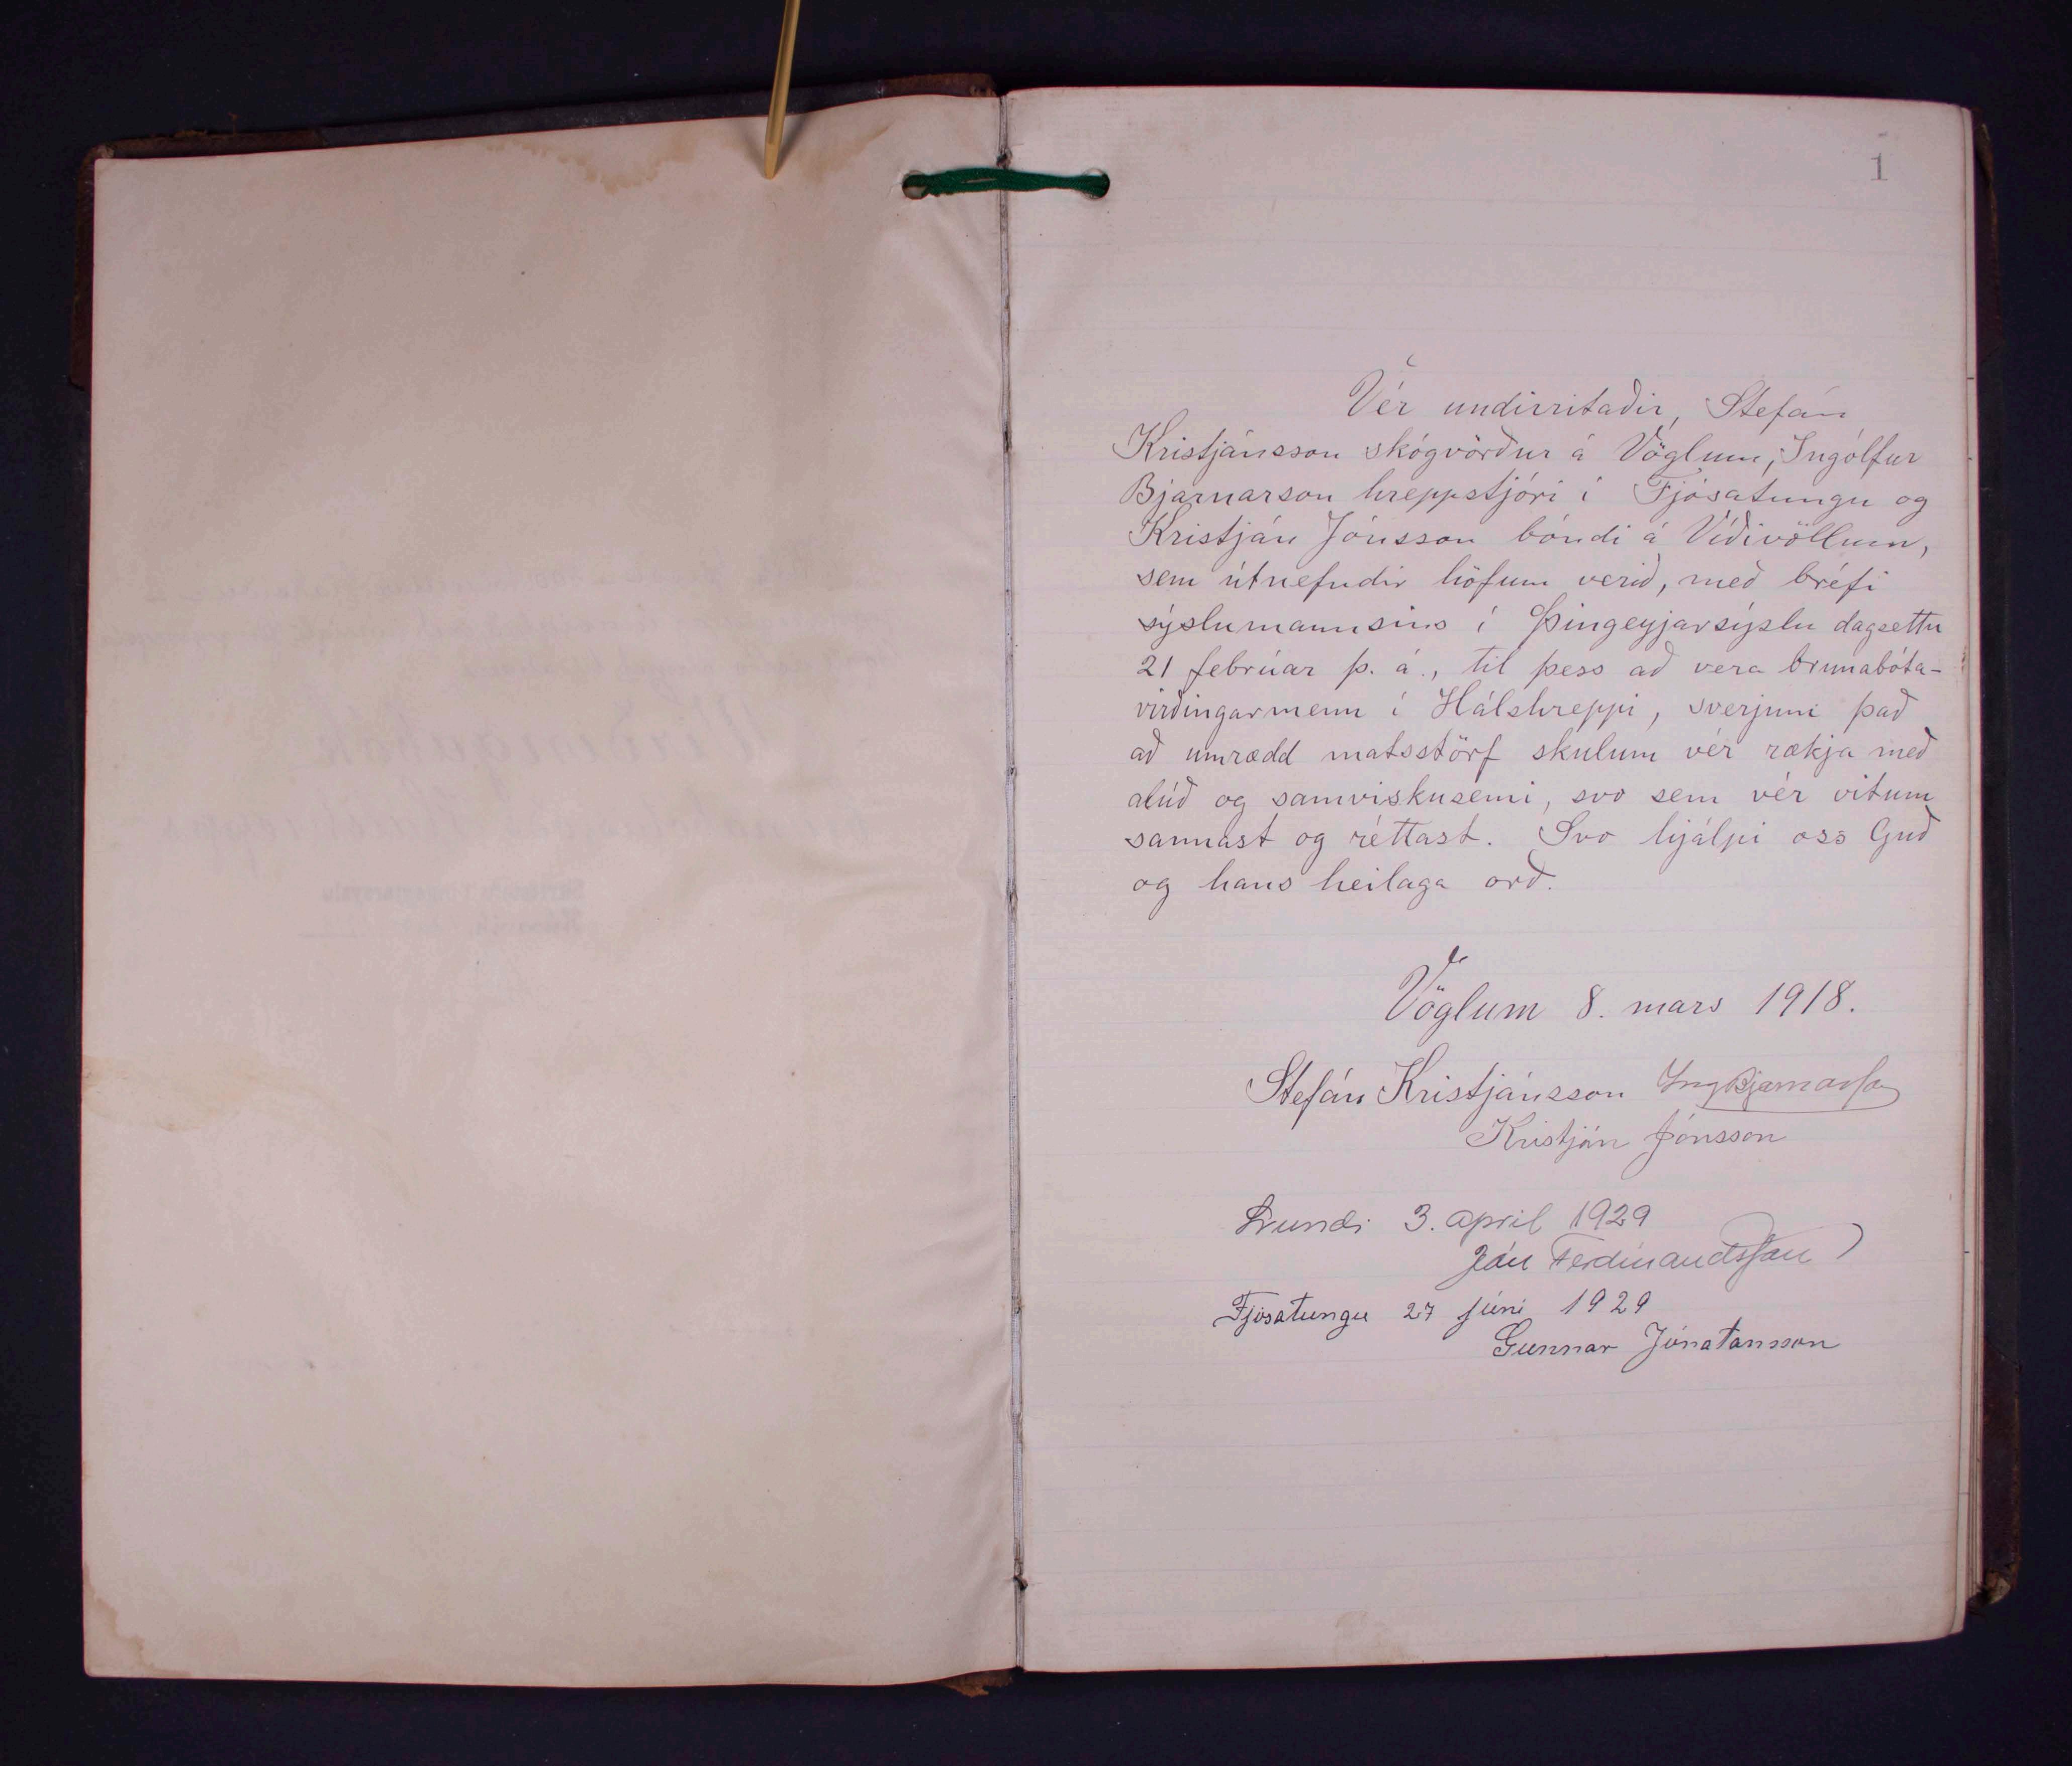 1
Vér undirritaðir, Stefán
Kristjánsson skógvörður á Vöglum, Ingólfur
Bjarnarson hreppstjóri í Fjósatungu og
Kristján Jónsson bóndi á Víðivöllum,
sem útnefndir höfum verið, með bréfi
sýslumannsins í Þingeyjarsýslu dagsettu
21 febrúar þ. á., til þess að vera brunabóta-
virðingarmenn í Hálshreppi, sverjum það
að umrædd matsstörf skulum vér rækja með
alúð og samviskusemi, svo sem vér vitum
sannast og réttast. Svo hjálpi oss Guð
og hans heilaga orð.
Vöglum 8. mars 1918.
Stefán Kristjánsson Ing Bjarnarson
Kristján Jónsson
Lundi 3. april 1929
Jón Ferdinandsson
Fjósatungu 27 júní 1929
Gunnar Jónatansson